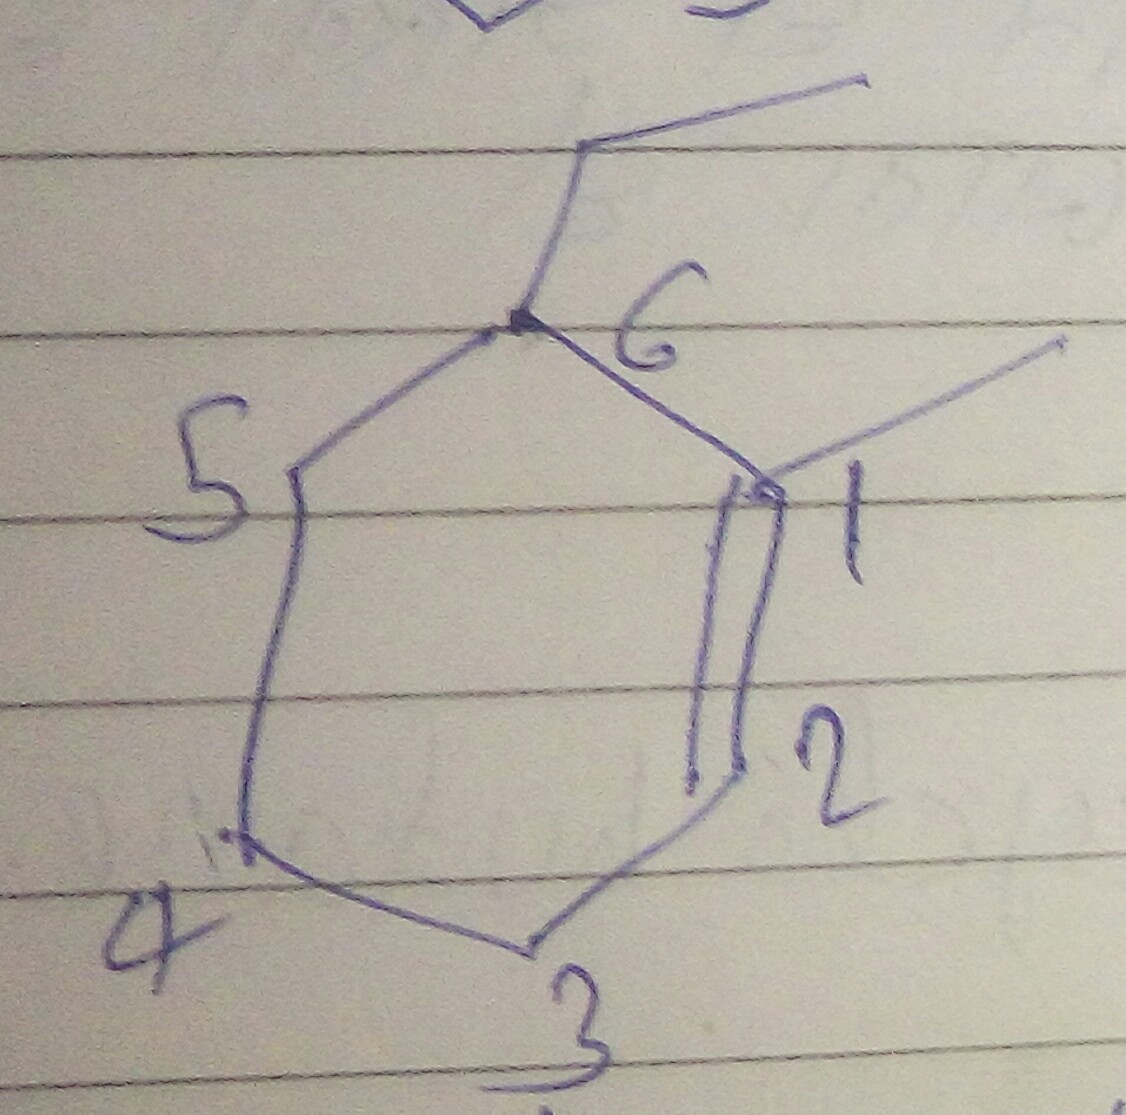 6
5
1
2
4
3